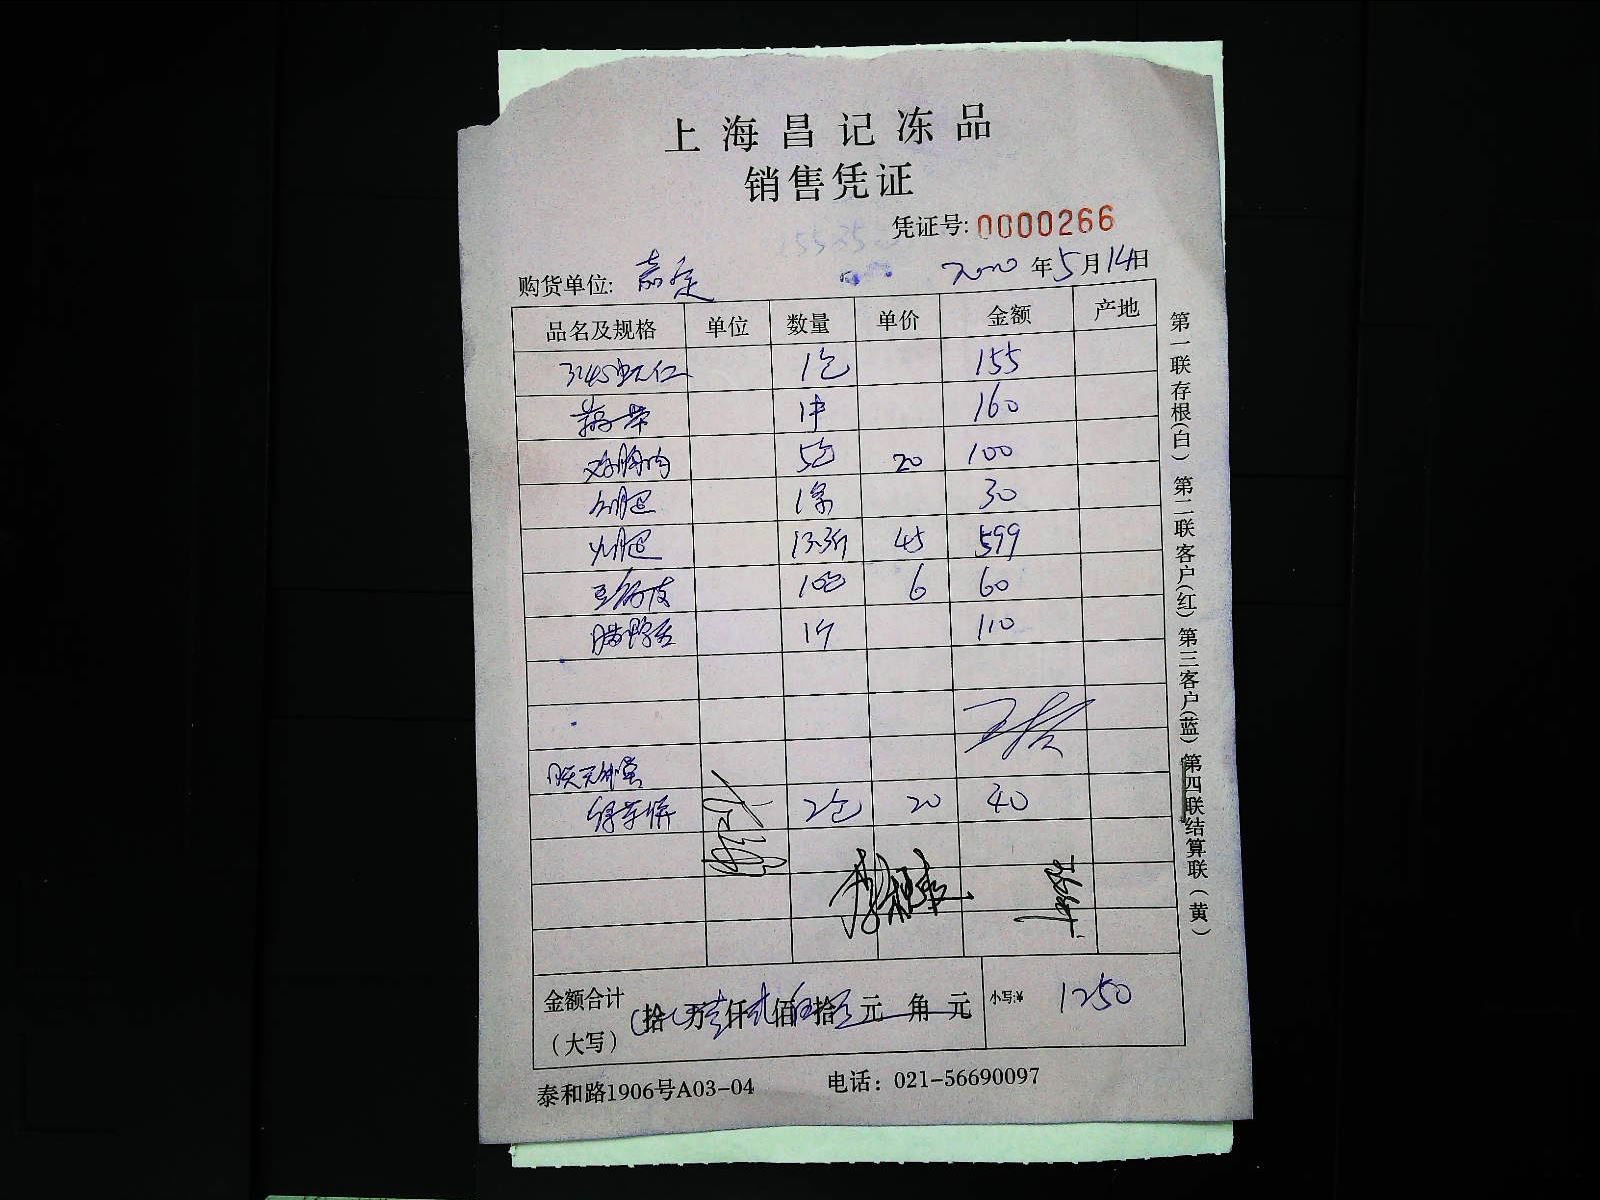 上海昌记冻品
销售凭证
凭证号: 0000266
购货单位: 嘉定 2020年5月14日
品名及规格 单位 数量 单价 金额 产地
3145虾仁 1包 155
1件 160
鸡胸肉 5包 20 100
1条 30
火腿 13.3斤 45 599
豆付皮 10包 6 60
1个 110
2包 20 40
金额合计(大写) 拾 万壹仟贰佰伍拾 元 角 元 小写:¥ 1250
泰和路1906号A03-04 电话: 021-56690097
第一联存根(白) 第二联客户(红) 第三客户(蓝) 第四联结算联(黄)